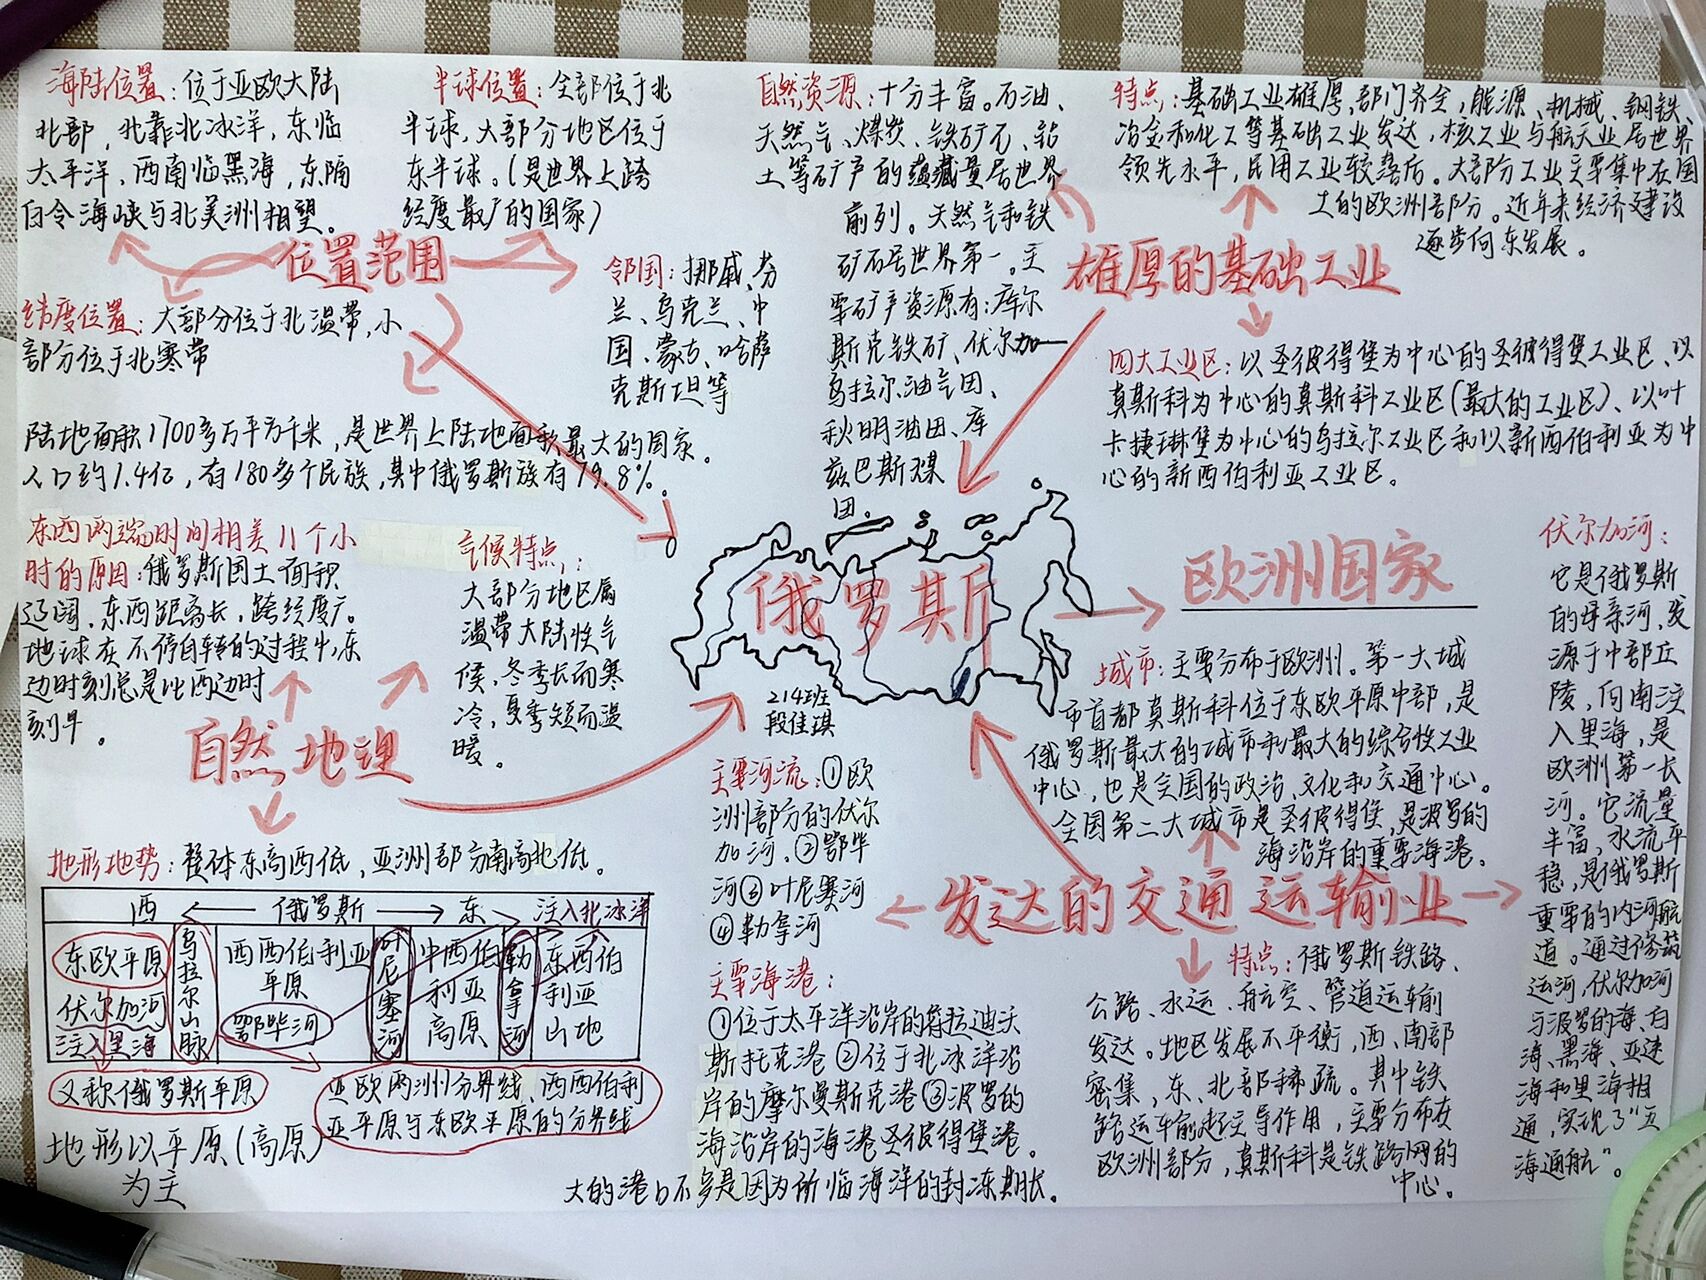 海陆位置：位于亚欧大陆
北部，北靠北冰洋，东临
太平洋、西南临黑海，东隔
白令海峡与北美洲相望。
半球位置：全部位于北
半球，大部分地区位于
东半球。（是世界上跨
经度最广的国家）
位置范围
纬度位置：大部分位于北温带，小
部分位于北寒带
邻国：挪威、芬
兰、乌克兰、中
国、蒙古、哈萨
克斯坦等
陆地面积1700多万平方千米，是世界上陆地面积最大的国家。
人口约1.4亿，有180多个民族，其中俄罗斯族有79.8%。
自然资源：十分丰富。石油、
天然气、煤炭、铁矿石、钻
土等矿产的蕴藏量居世界
前列。天然气和铁
矿石居世界第一。主
要矿产资源有：库尔
斯克铁矿、伏尔加—
乌拉尔油气田、
秋明油田、库
兹巴斯煤
田。
特点：基础工业雄厚，部门齐全，能源、机械、钢铁、
冶金和化工等基础工业发达，核工业与航天业居世界
领先水平，民用工业较落后。大部分工业主要集中在国
土的欧洲部分。近年来经济建设
逐步向东发展。
雄厚的基础工业
四大工业区：以圣彼得堡为中心的圣彼得堡工业区、以
莫斯科为中心的莫斯科工业区（最大的工业区）、以叶
卡捷琳堡为中心的乌拉尔工业区和以新西伯利亚为中
心的新西伯利亚工业区。
东西两端时间相差11个小
时的原因：俄罗斯国土面积
辽阔，东西距离长，跨经度广。
地球在不停自转的过程中，东
边时刻总是比西边时
刻早。
气候特点：
大部分地区属
温带大陆性气
候，冬季长而寒
冷，夏季短而温
暖。
自然地理
俄罗斯
214班
段佳琪
欧洲国家
城市：主要分布于欧洲。第一大城
市首都莫斯科位于东欧平原中部，是
俄罗斯最大的城市和最大的综合性工业
中心，也是全国的政治、文化和交通中心。
全国第二大城市是圣彼得堡，是波罗的
海沿岸的重要海港。
伏尔加河：
它是俄罗斯
的母亲河，发
源于中部丘
陵，向南注
入里海，是
欧洲第一长
河。它流量
丰富，水流平
稳，是俄罗斯
重要的内河航
道。通过修筑
运河，伏尔加河
与波罗的海、白
海、黑海、亚速
海和里海相
通，实现了“五
海通航”。
地形地势：整体东高西低，亚洲部分南高北低。
西 ← 俄罗斯 → 东 注入北冰洋
东欧平原
伏尔加河
注入里海
乌拉尔山脉
西西伯利亚
平原
鄂毕河
叶尼塞河
中西伯
利亚
高原
勒拿河
东西伯
利亚
山地
又称俄罗斯平原
亚欧两洲分界线、西西伯利
亚平原与东欧平原的分界线
地形以平原（高原）
为主
主要河流：①欧
洲部分的伏尔
加河。②鄂毕
河③叶尼塞河
④勒拿河
主要海港：
①位于太平洋沿岸的符拉迪沃
斯托克港②位于北冰洋沿
岸的摩尔曼斯克港③波罗的
海沿岸的海港圣彼得堡港。
大的港口不多是因为所临海洋的封冻期长。
发达的交通运输业
特点：俄罗斯铁路、
公路、水运、航空、管道运输
发达。地区发展不平衡，西、南部
密集，东、北部稀疏。其中铁
路运输起主导作用，主要分布在
欧洲部分，莫斯科是铁路网的
中心。